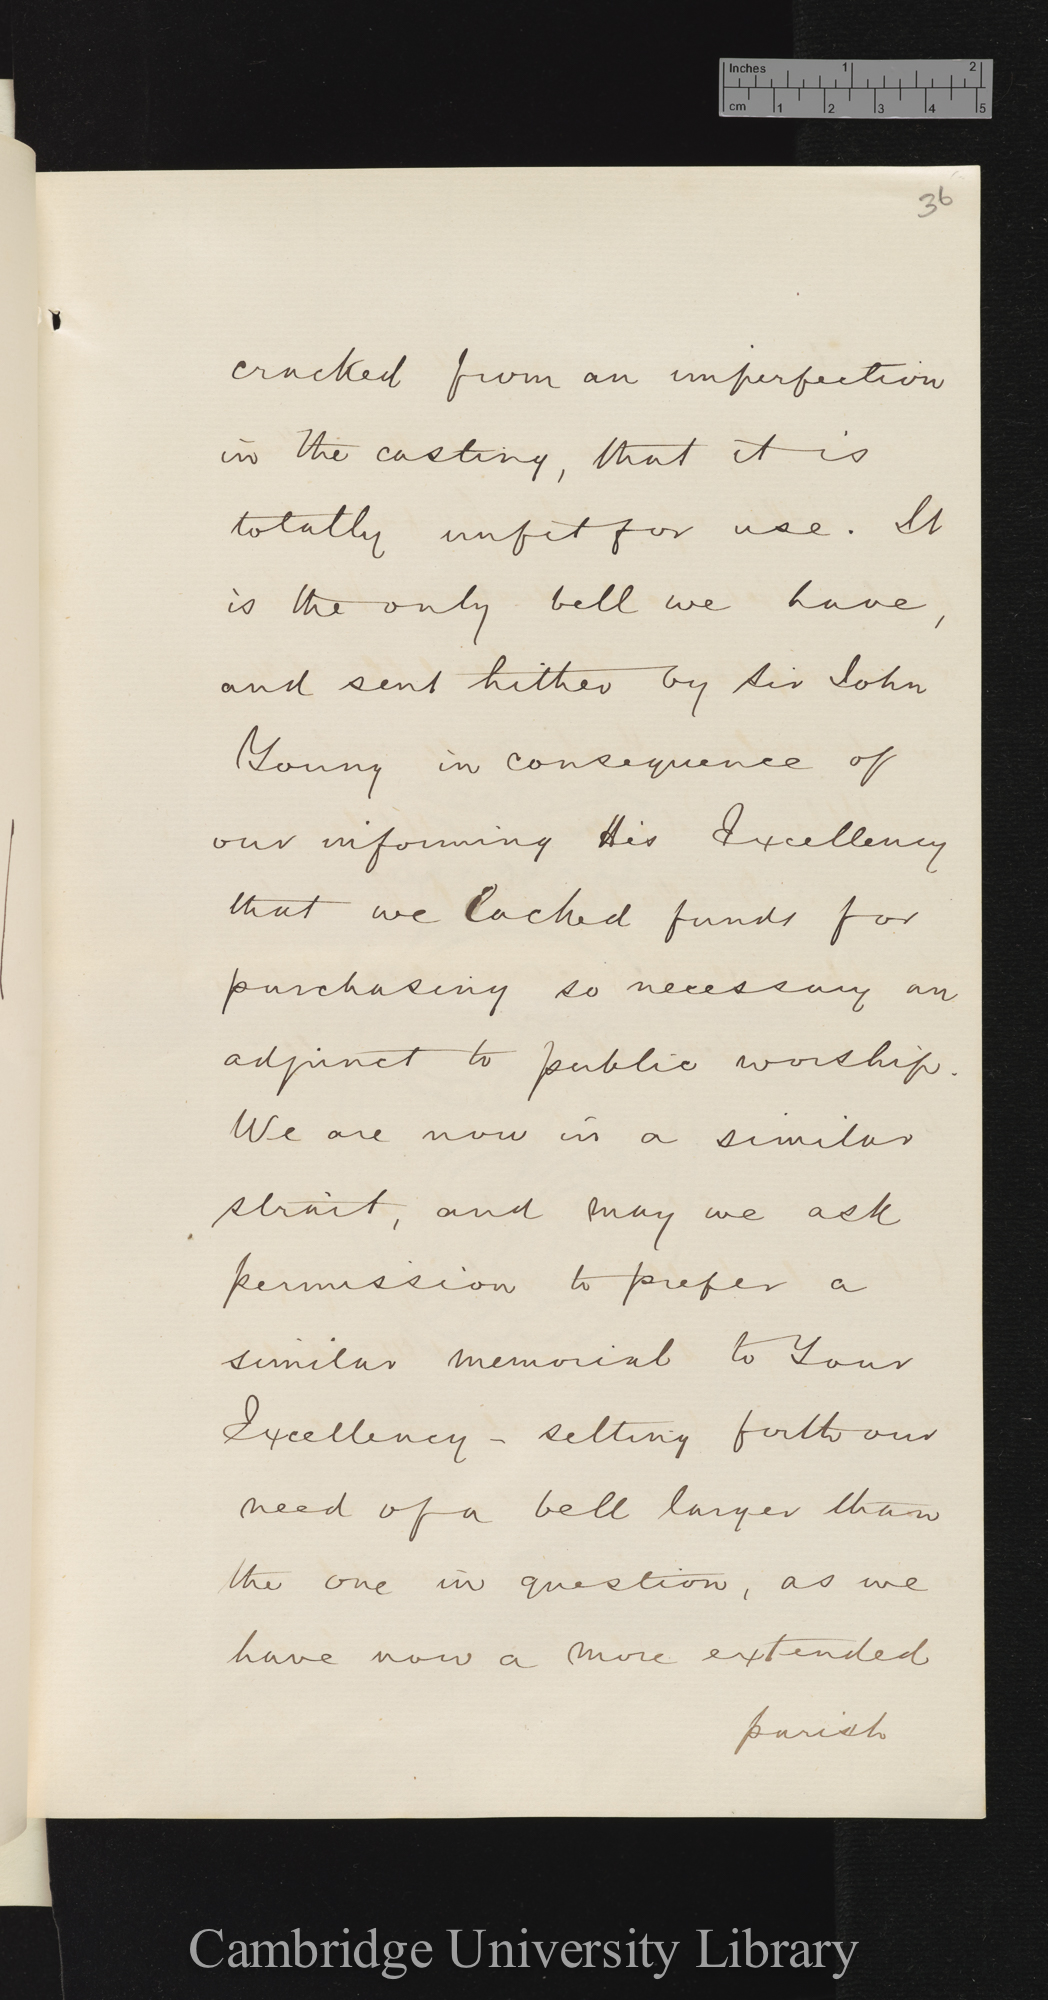 Inches 1 2
cm 1 2 3 4 5
36
cracked from an imperfection
in the casting, that it is
totally unfit for use. It
is the only bell we have,
and sent hither by Sir John
Young in consequence of
our informing His Excellency
that we lacked funds for
purchasing so necessary an
adjunct to public worship.
We are now in a similar
strait, and may we ask
permission to prefer a
similar memorial to Your
Excellency - setting forth our
need of a bell larger than
the one in question, as we
have now a more extended
parish
Cambridge University Library